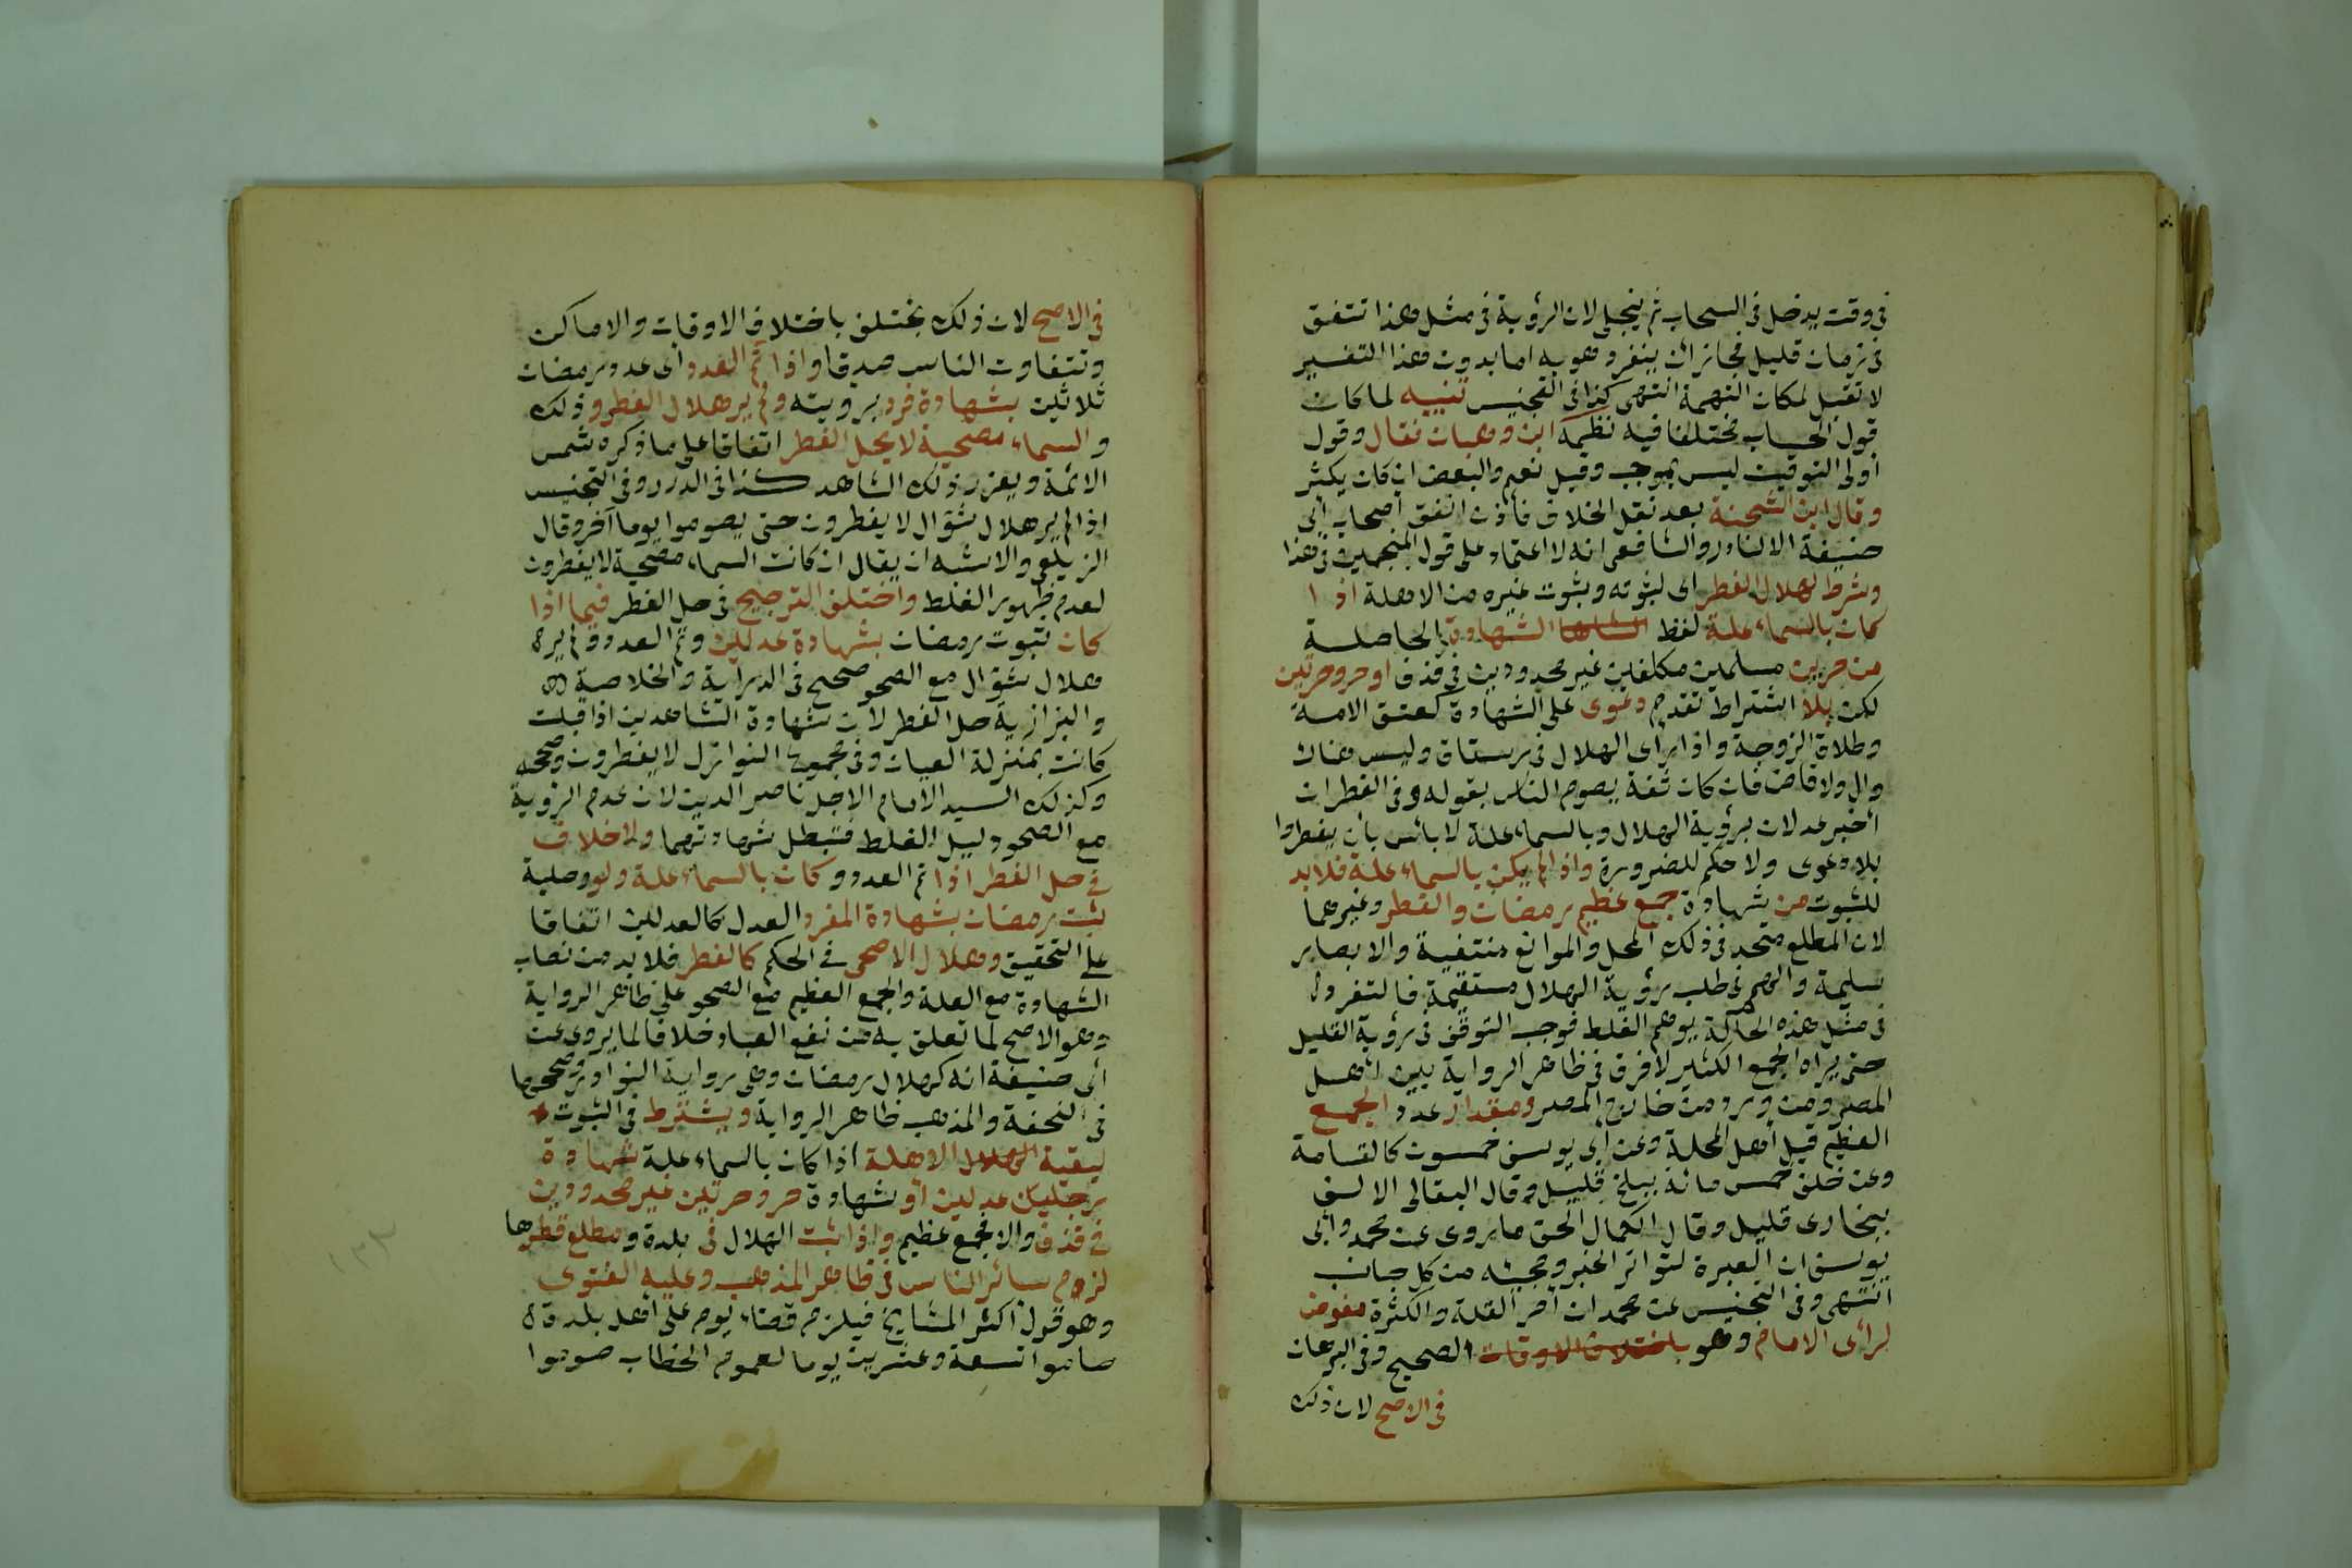 في وقت يدخل في السحاب ثم ينجلي لان الرؤية في مثل هذا تتفق
في زمان قليل فجاز ان ينفرد هو به اما بدون هذا التفسير
لا تقبل لمكان التهمة انتهى كذا في التجنيس تنبيه لما كان
قول الحساب مختلفا فيه نظمه ابن وهبان فقال وقول
أولى التوقيت ليس بموجب وقيل نعم والبعض ان كان يكثر
وقال ابن الشحنة بعد نقل الخلاف فأذن اتفق أصحاب أبي
حنيفة الا النادر والشافعي انه لا اعتماد على قول المنجمين في هذا
وشرط لهلال الفطر اى لثبوته وثبوت غيره من الاهلة اذا
كان بالسماء علة لفظ الشهادة الحاصلة
من حرين مسلمين مكلفين غير محدودين في قذف او حر وحرتين
لكن بلا اشتراط تقدم دعوى على الشهادة كعتق الامة
وطلاق الزوجة واذا رأى الهلال في رستاق وليس هناك
وال ولا قاض فان كان ثقة يصوم الناس بقوله وفي الفطر ان
أخبر عدلان برؤية الهلال وبالسماء علة لا بأس بأن يفطروا
بلا دعوى ولا حكم للضرورة واذا لم يكن بالسماء علة فلا بد
للثبوت من شهادة جمع عظيم لرمضان والفطر وغيرهما
لان المطلع متحد في ذلك المحل والموانع منتفية والابصار
سليمة والهمم في طلب رؤية الهلال مستقيمة فالتفرد
في مثل هذه الحالة يوهم الغلط فوجب التوقف في رؤية القليل
حتى يراه الجمع الكثير لا فرق في ظاهر الرواية بين اهل
المصر ومن ورد من خارج المصر ومقدار عدد الجمع
العظيم قيل أهل المحلة وعن أبي يوسف خمسون كالقسامة
وعن خلف خمس مائة ببلخ قليل وقال البقالي الالف
ببخارى قليل وقال الكمال الحق ما روى عن محمد وأبي
يوسف ان العبرة لتواتر الخبر ومجيئه من كل جانب
انتهى وفي التجنيس عن محمد ان أمر القلة والكثرة مفوض
لرأى الامام وهو باختلاف الاوقات الصحيح وفي البرهان
في الاصح لان ذلك
في الاصح لان ذلك يختلف باختلاف الاوقات والاماكن
وتتفاوت الناس صدقا واذا تم العدد أى عدد رمضان
ثلاثين بشهادة فرد برويته ولم ير هلال الفطر وذلك
والسماء مصحية لا يحل الفطر اتفاقا على ما ذكره شمس
الائمة ويعزر ذلك الشاهد كذا في الدرر وفي التجنيس
اذا لم ير هلال شوال لا يفطرون حتى يصوموا يوما آخر وقال
الزيلعي والاشبه ان يقال ان كانت السماء مصحية لا يفطرون
لعدم ظهور الغلط واختلف الترجيح في حل الفطر فيما اذا
كان ثبوت رمضان بشهادة عدلين وتم العدد ولم ير
هلال شوال مع الصحو صحح في الدراية والخلاصة
والبزازية حل الفطر لان شهادة الشاهدين اذا قبلت
كانت بمنزلة العيان وفي مجموع النوازل لا يفطرون وصححه
وكذلك السيد الامام الاجل ناصر الدين لان عدم الرؤية
مع الصحو دليل الغلط فتبطل شهادتهما ولا خلاف
في حل الفطر اذا تم العدد وكان بالسماء علة ولو وصلية
ثبت رمضان بشهادة الفرد العدل كالعدلين اتفاقا
على التحقيق وهلال الاضحى في الحكم كالفطر فلا بد من نصاب
الشهادة مع العلة والجمع العظيم مع الصحو على ظاهر الرواية
وهو الاصح لما تعلق به من نفع العباد خلافا لما يروى عن
أبي حنيفة انه كهلال رمضان وهي رواية النوادر وصححها
في التحفة والمذهب ظاهر الرواية ويشترط في الثبوت
لبقية الهلال الاهلة اذا كان بالسماء علة شهادة
رجلين عدلين أو شهادة حر وحرتين غير محدودين
في قذف والا فجمع عظيم واذا ثبت الهلال في بلدة ومطلع قطرها
لزم سائر الناس في ظاهر المذهب وعليه الفتوى
وهو قول أكثر المشايخ فيلزم قضاء يوم على أهل بلدة
صاموا تسعة وعشرين يوما لعموم الخطاب صوموا